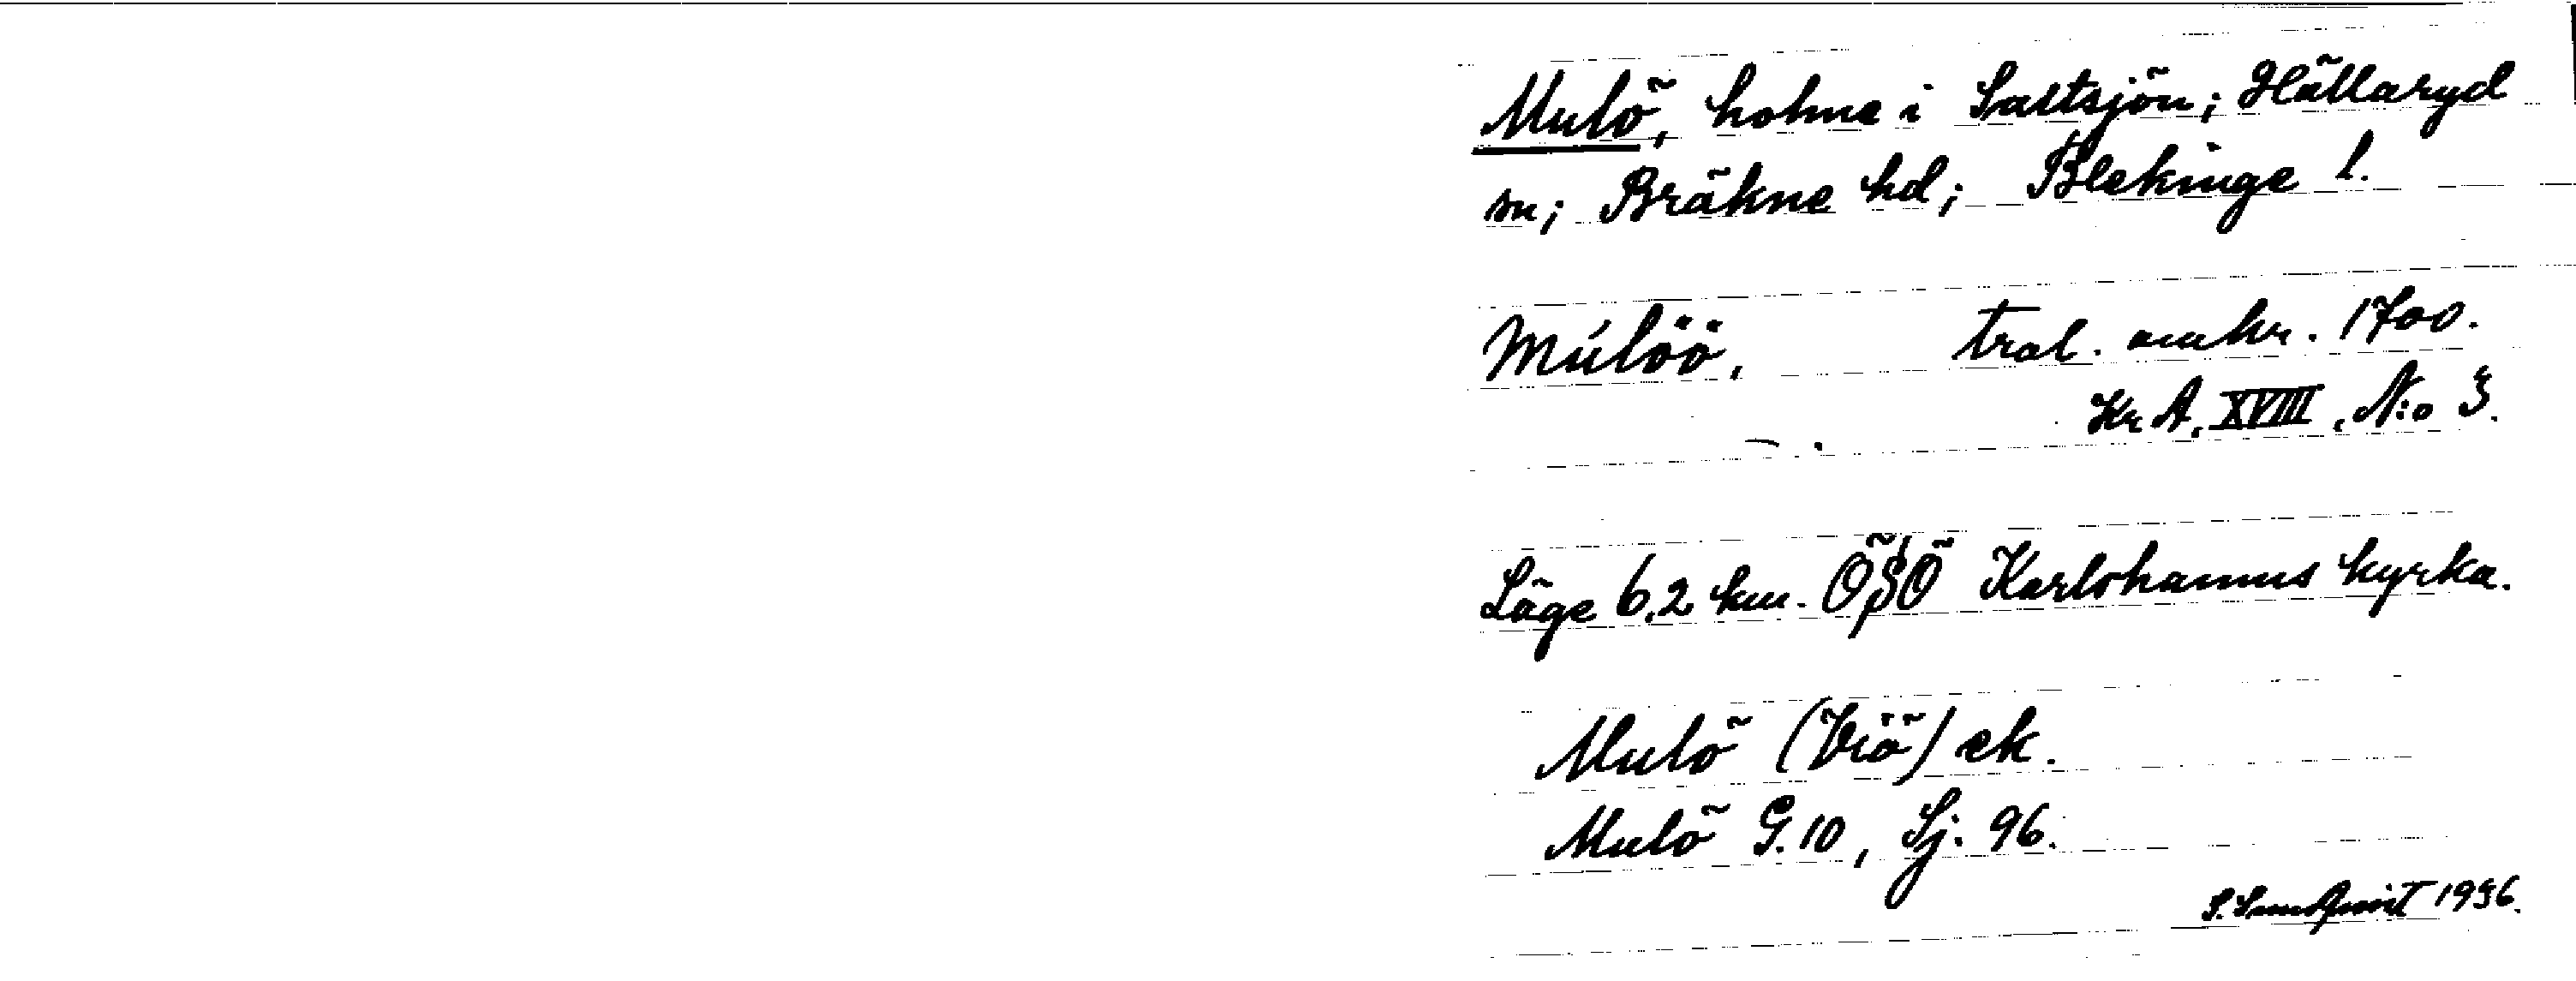 Mulö, holme i Saltsjön; Hällaryd
sn; Bräkne hd; Blekinge l.
Múlöö, trol. omkr. 1700.
Kr A. XVIII. N:o 3.
Läge 6,2 km. ÖSÖ Karlshamns kyrka.
Mulö (Viö) ek.
Mulö G. 10, Sj. 96.
S. Sundqvist 1936.